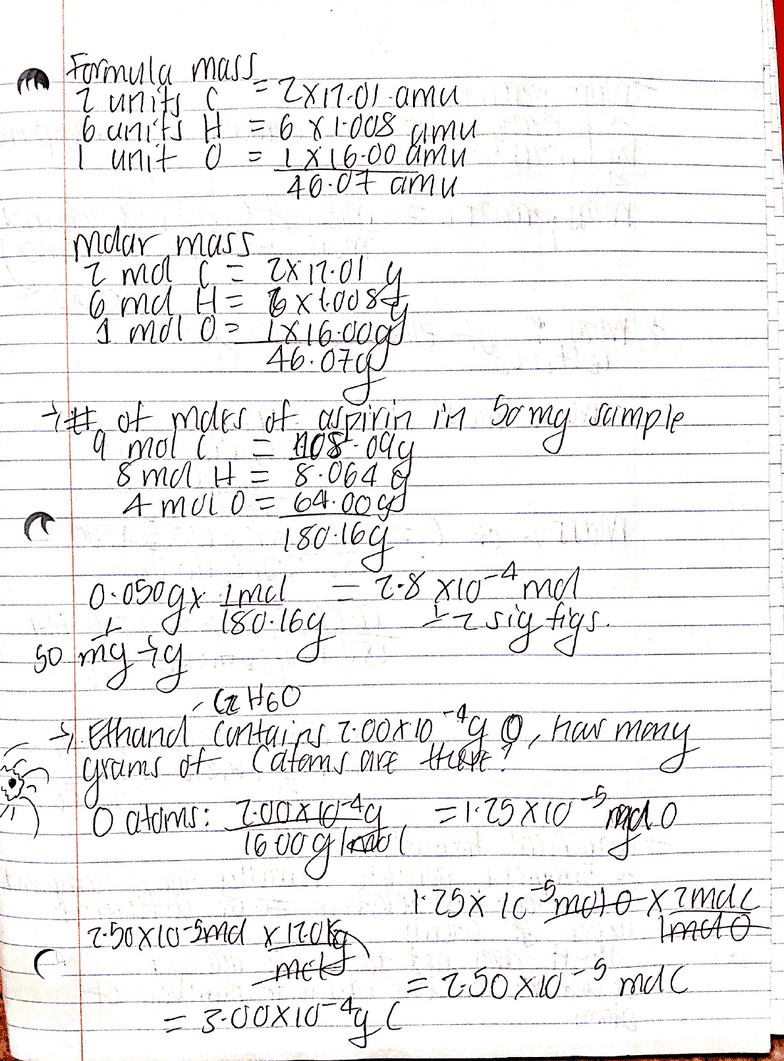 Formula mass
2 units C = 2x12.01 amu
6 units H = 6 x1.008 amu
1 unit O = 1x16.00 amu
46.07 amu
molar mass
2 mol C = 2x12.01 g
6 mol H = 6x1.008g
1 mol O = 1x16.00g
46.07g
→ # of moles of aspirin in 50mg sample
9 mol C = 108.09g
8 mol H = 8.064 g
4 mol O = 64.00g
180.16g
0.050g x 1mol / 180.16g = 2.8 x10⁻⁴ mol
↳ 2 sig figs.
50 mg → g
C2H6O
→ Ethanol contains 2.00x10⁻⁴g O, how many
grams of C atoms are there?
O atoms: 2.00x10⁻⁴g / 16.00g/mol = 1.25x10⁻⁵ mol O
1.25x10⁻⁵ mol O x 2mol C / 1mol O
= 2.50x10⁻⁵ mol C
2.50x10⁻⁵mol x 12.01g / mol
= 3.00x10⁻⁴g C